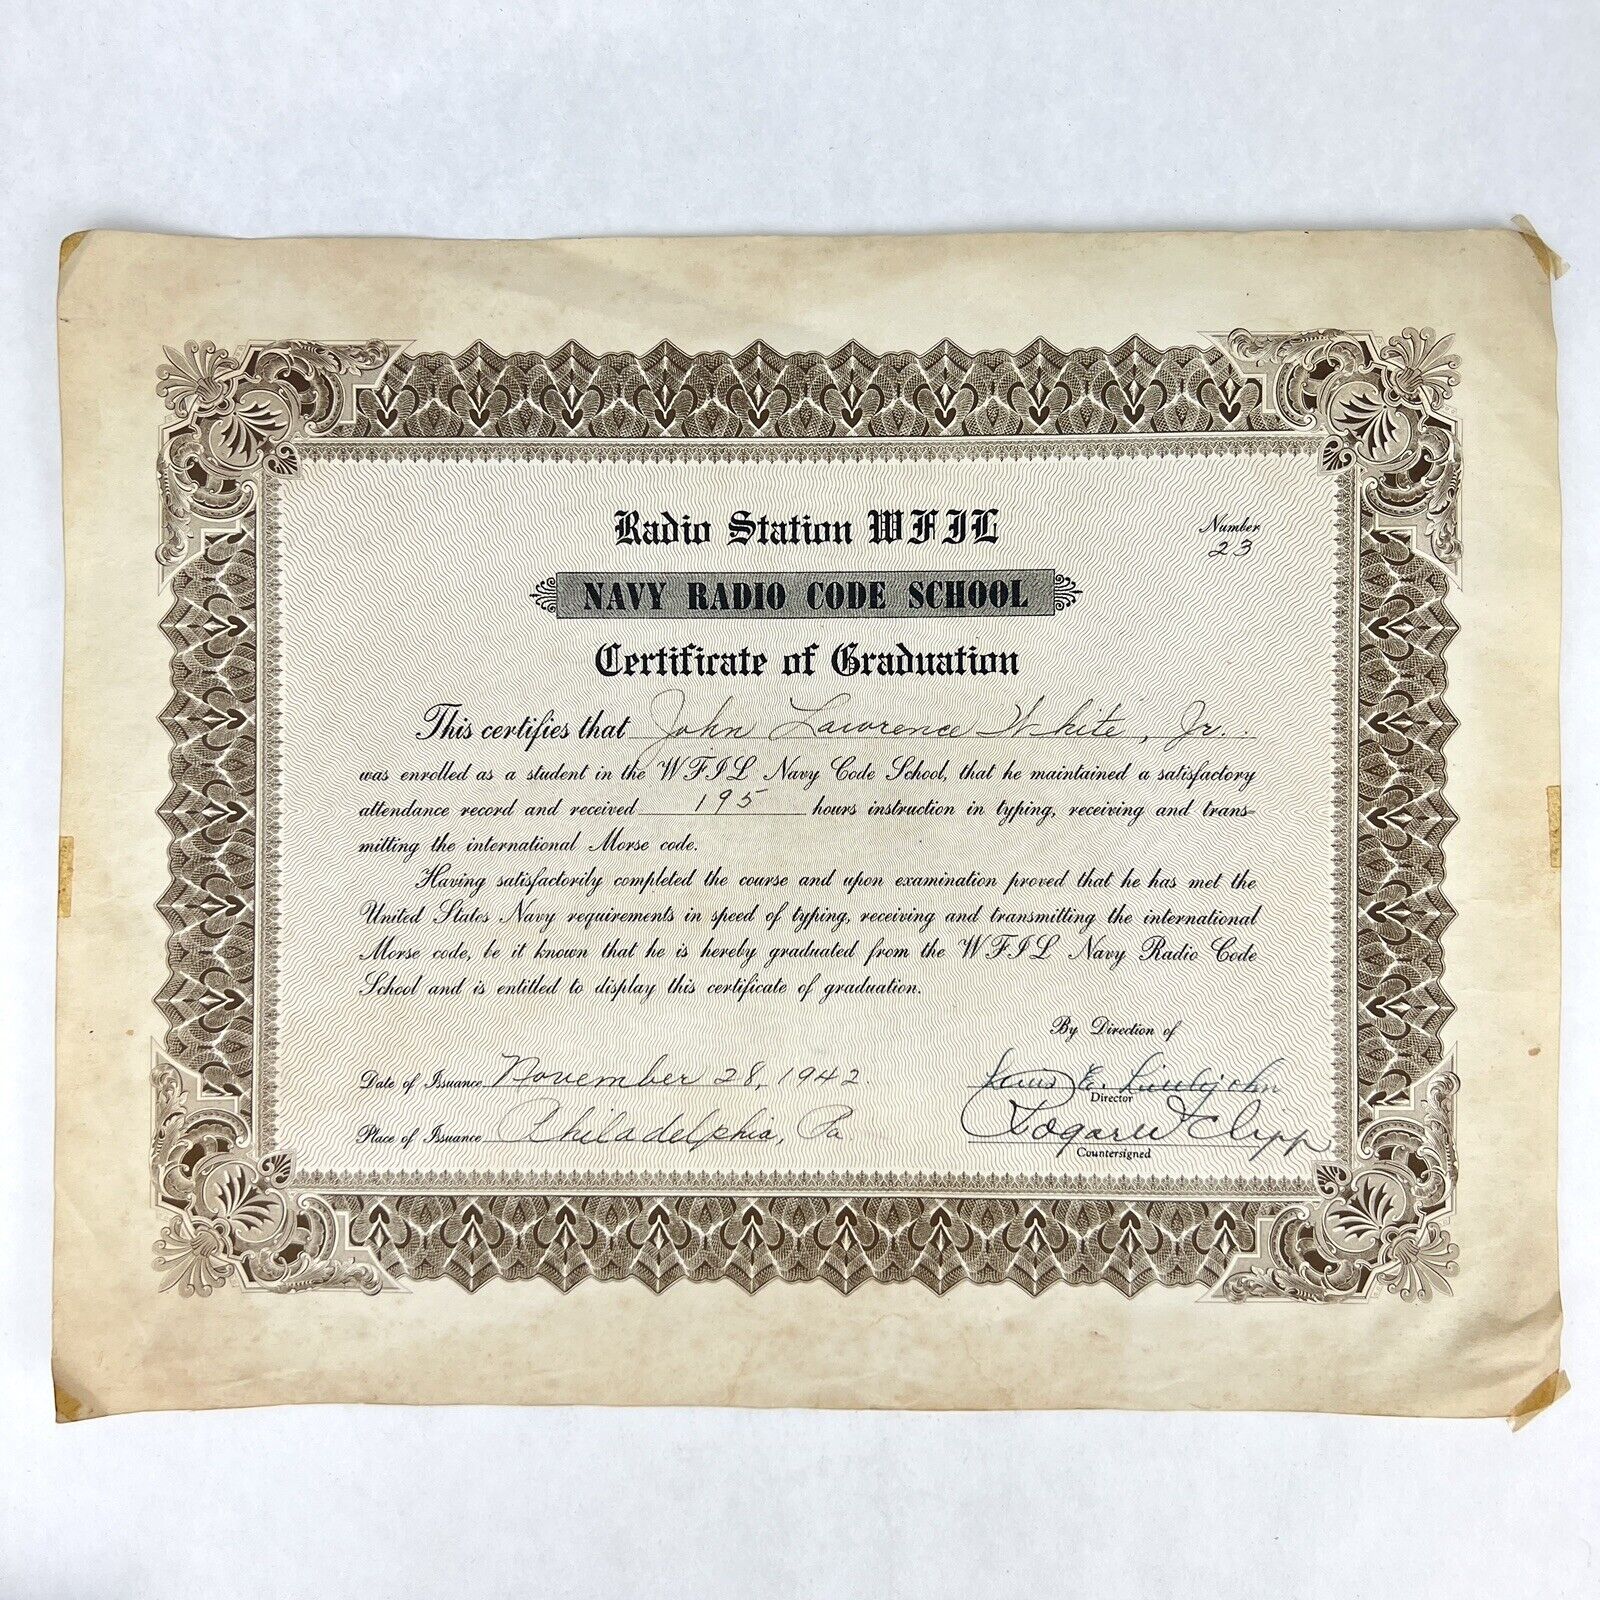 Radio Station WFIL
Number
23
NAVY RADIO CODE SCHOOL
Certificate of Graduation
This certifies that John Lawrence White, Jr.
was enrolled as a student in the WFIL Navy Code School, that he maintained a satisfactory
attendance record and received 195 hours instruction in typing, receiving and trans-
mitting the international Morse code.
Having satisfactorily completed the course and upon examination proved that he has met the
United States Navy requirements in speed of typing, receiving and transmitting the international
Morse code, be it known that he is hereby graduated from the WFIL Navy Radio Code
School and is entitled to display this certificate of graduation.
By Direction of
Date of Issuance November 28, 1942.
E. Littlejohn
Director
Place of Issuance Philadelphia, Pa.
Roger W Clipp
Countersigned